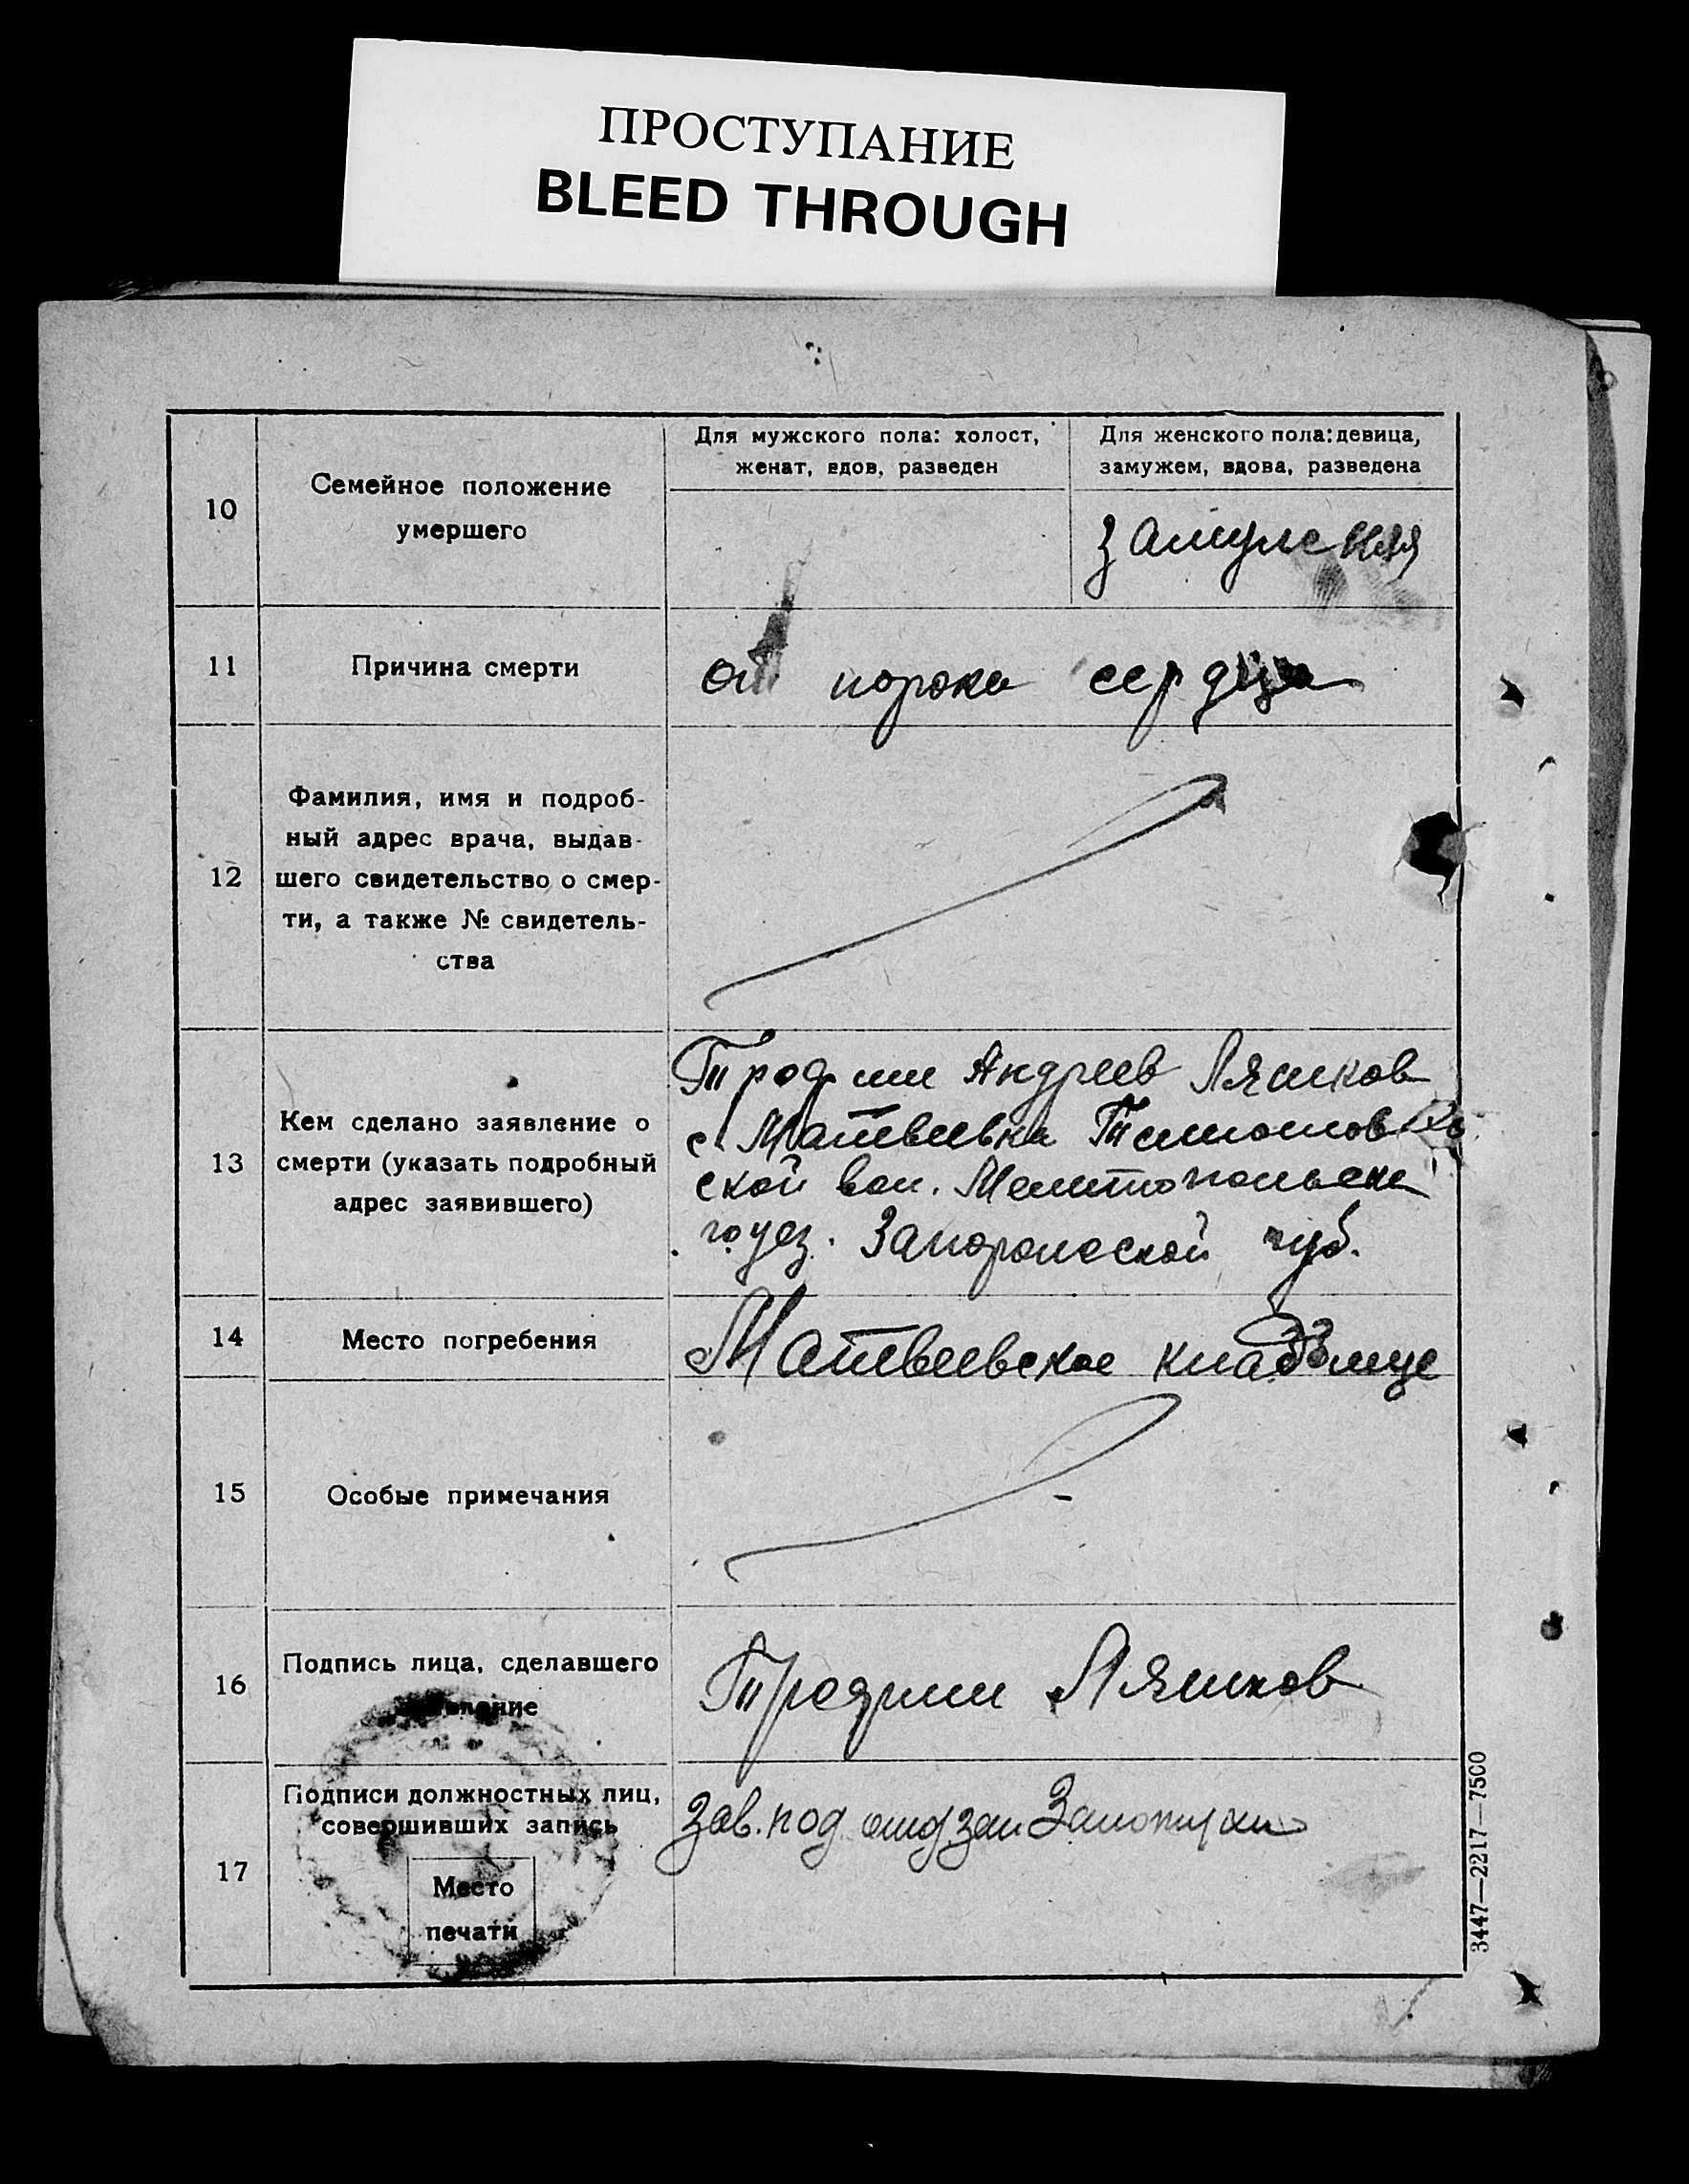 ПРОСТУПАНИЕ
BLEED THROUGH
Для мужского пола: холост,
женат, вдов, разведен
Для женского пола: девица,
замужем, вдова, разведена
10
Семейное положение
умершего
замужняя
11
Причина смерти
от порока сердца
12
Фамилия, имя и подроб-
ный адрес врача, выдав-
шего свидетельство о смер-
ти, а также № свидетель-
ства
13
Кем сделано заявление о
смерти (указать подробный
адрес заявившего)
Андреев Ляшков
с. Матвеевка
ской вол. Мелитопольско
го уез. Запорожской губ.
14
Место погребения
Матвеевское кладбище
15
Особые примечания
16
Подпись лица, сделавшего
заявление
Ляшков
17
Подписи должностных лиц,
совершивших запись
Место
печати
Зав. под
3447—2217—7500